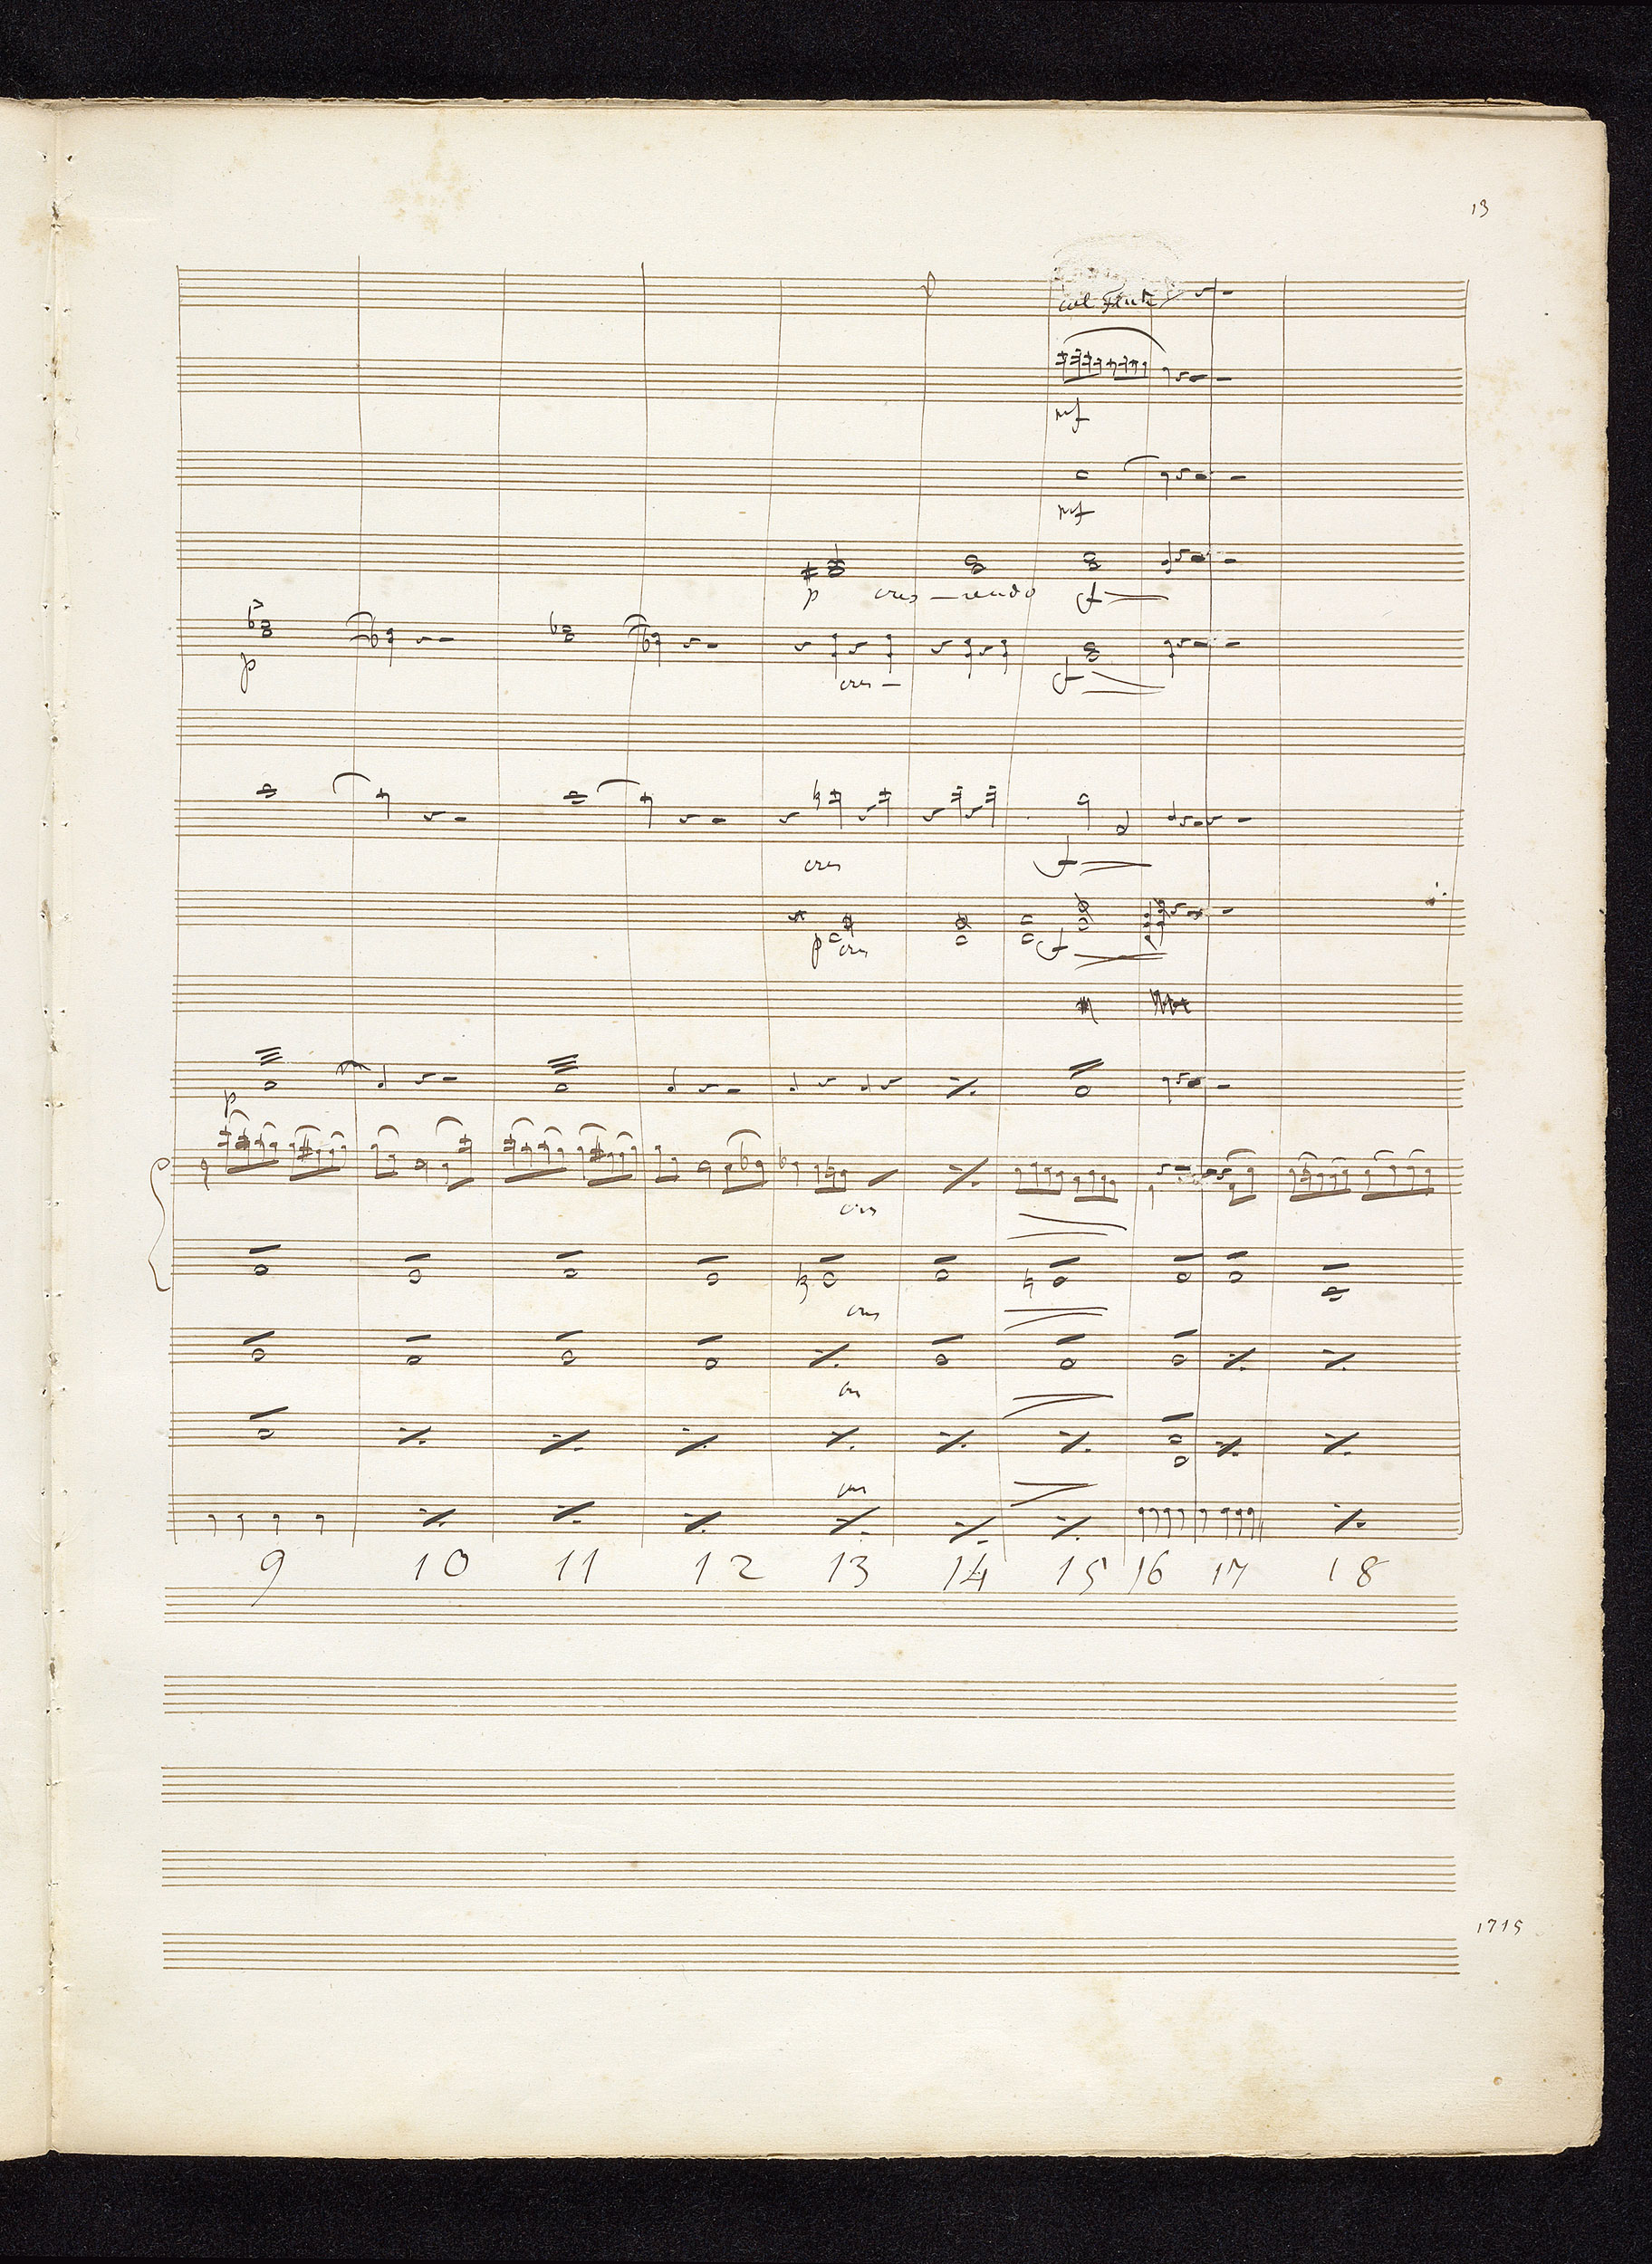 13
col Flute
mf
mf
p cres - cendo f
p cres - f
cres f
p cres f
p
cres
cres
cres
cres
9 10 11 12 13 14 15 16 17 18
1715